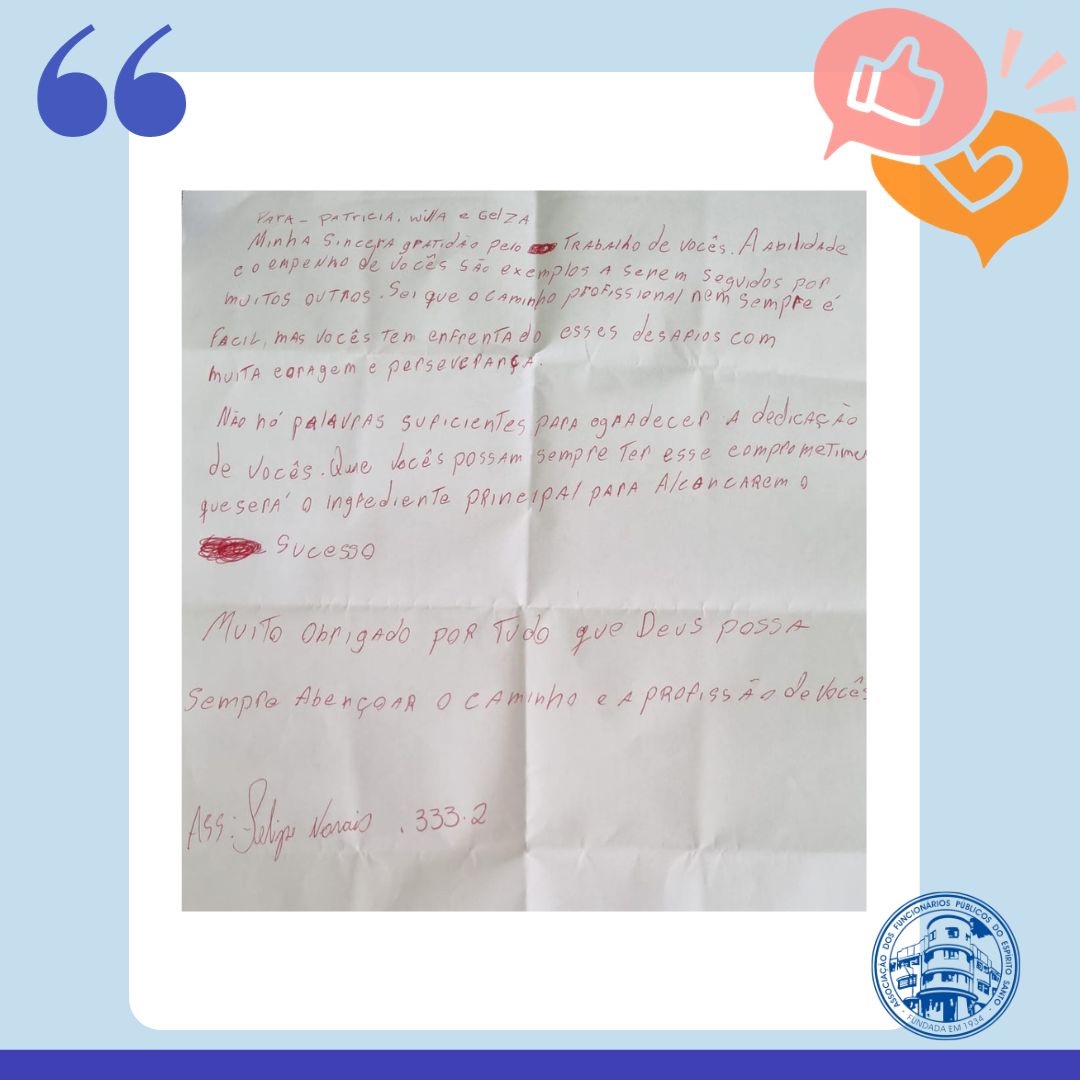 PARA - PATRICIA, Willa e GelZA
Minha Sincera gratidão pelo TRABALHO de vocês. A abilidade
e o empenho de vocês são exemplos A serem seguidos por
muitos outros. Sei que o caminho profissional nem sempre é
FACIL, mas vocês Tem enfrentado esses desafios com
muita coragem e perseverança.
Não há palavras suficientes para agradecer A dedicação
de vocês. Que vocês possam sempre Ter esse comprometime
que será o ingrediente principal para Alcancarem o
Sucesso
Muito Obrigado por Tudo que Deus possa
Sempre Abençoar o caminho e a profissão de vocês
ASS: Felipe . 333.2
ASSOCIAÇÃO DOS FUNCIONÁRIOS PÚBLICOS DO ESPÍRITO SANTO
· FUNDADA EM 1934 ·